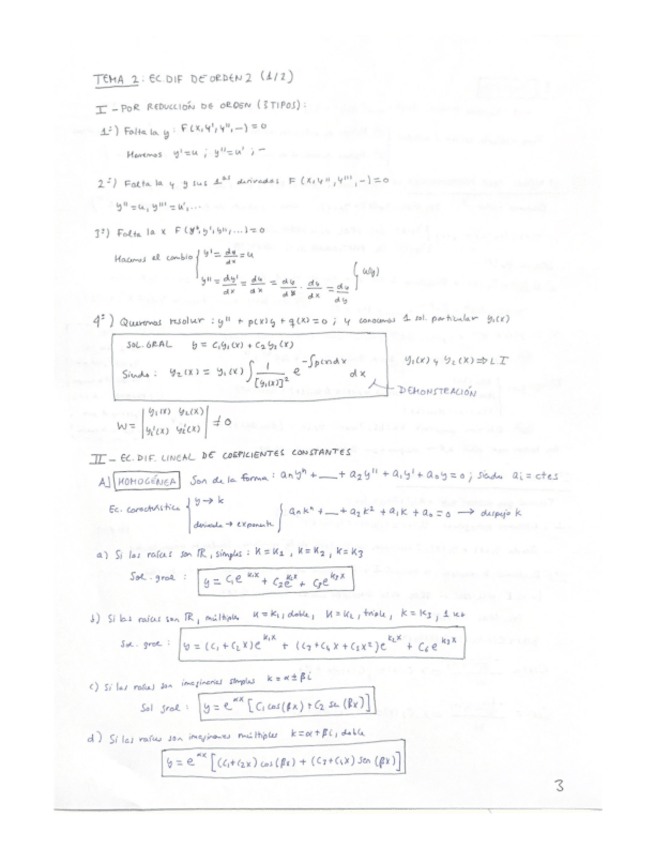 TEMA 2: EC.DIF DE ORDEN 2 (1/2)
I - POR REDUCCIÓN DE ORDEN (3 TIPOS):
1º) Falta la y: F(x,y',y'',-)=0
Hacemos y'=u ; y''=u' ; -
2º) Falta la y y sus 1as derivadas F(x,y'',y''',-)=0
y''=u, y'''=u',...
3º) Falta la x F(y,y',y'',...)=0
Hacemos el cambio { y' = dy/dx = u
y'' = dy'/dx = du/dx = du/dx · dy/dx = du/dy } u(y)
4º) Queremos resolver : y'' + p(x)y + q(x)=0 ; y conocemos 1 sol. particular y₁(x)
SOL. GRAL y = C₁y₁(x) + C₂y₂(x)
Siendo: y₂(x) = y₁(x) ∫ 1/[y₁(x)]² e^-∫p(x)dx dx
y₁(x) y y₂(x) ⇒ L I
DEMONSTRACIÓN
W = | y₁(x) y₂(x) | ≠ 0
| y₁'(x) y₂'(x) |
II - EC. DIF. LINEAL DE COEFICIENTES CONSTANTES
A) HOMOGÉNEA Son de la forma: aₙyⁿ + __ + a₂y'' + a₁y' + a₀y = 0 ; siendo aᵢ = ctes
Ec. característica { y → k
derivada → exponente } aₙkⁿ + __ + a₂k² + a₁k + a₀ = 0 → despejo k
a) Si las raíces son ℝ, simples: k=k₁, k=k₂, k=k₃
Sol. gral : y = C₁e^k₁x + C₂e^k₂x + C₃e^k₃x
b) Si las raíces son ℝ, múltiples k=k₁, doble, k=k₂, triple, k=k₃, 1
Sol. gral : y = (C₁+C₂x)e^k₁x + (C₃+C₄x+C₅x²)e^k₂x + C₆e^k₃x
c) Si las raíces son imaginarias simples k=α±βi
Sol gral : y = e^αx [C₁cos(βx) + C₂ sen (βx)]
d) Si las raíces son imaginarias múltiples k=α+βi, doble
y = e^αx [(C₁+C₂x) cos(βx) + (C₃+C₄x) sen (βx)]
3